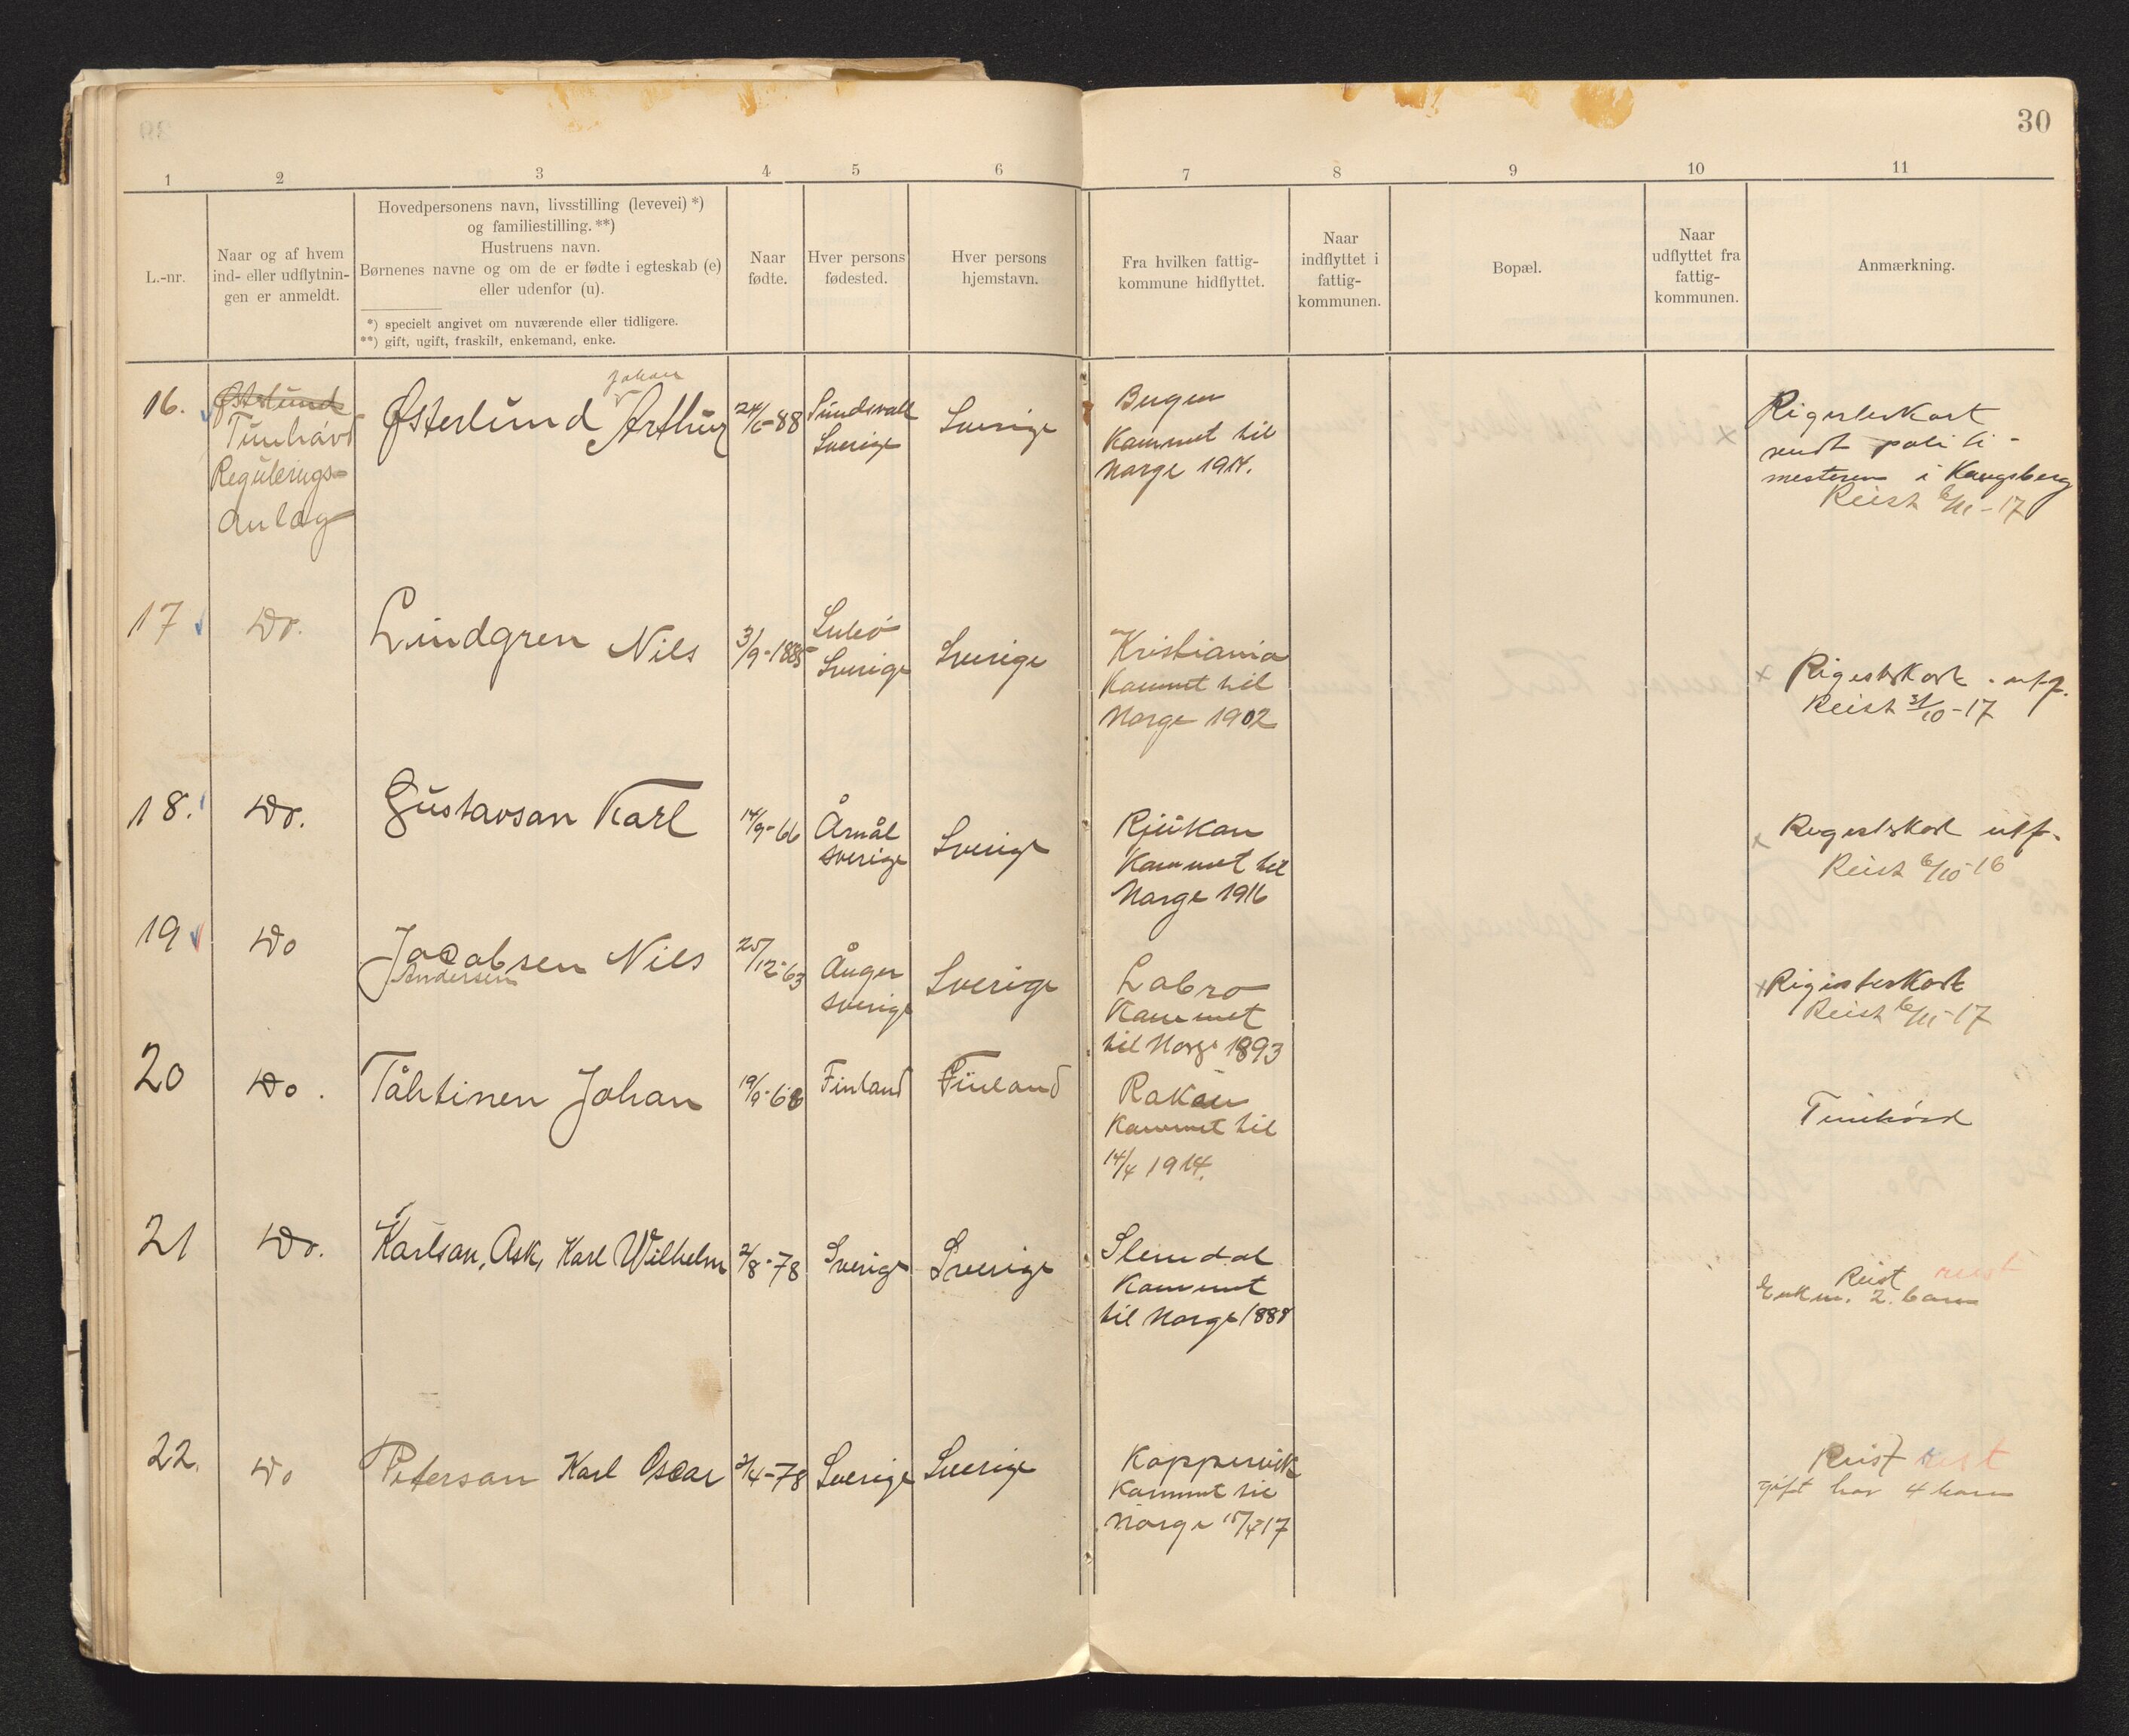 30
1 2 3 4 5 6 7 8 9 10 11
L.-nr.
Naar og af hvem
ind- eller udflytnin-
gen er anmeldt.
Hovedpersonens navn, livsstilling (levevei) *)
og familiestilling. **)
Hustruens navn.
Børnenes navne og om de er fødte i egteskab (e)
eller udenfor (u).
*) specielt angivet om nuværende eller tidligere.
**) gift, ugift, fraskilt, enkemand, enke.
Naar
fødte.
Hver persons
fødested.
Hver persons
hjemstavn.
Fra hvilken fattig-
kommune hidflyttet.
Naar
indflyttet i
fattig-
kommunen.
Bopæl.
Naar
udflyttet fra
fattig-
kommunen.
Anmærkning.
16.
Østerlund
Tunhövd
Regulerings-
anlæg
Johan
Østerlund Arthur
24/6-88
Sundsvall
Sverige
Sverige
Bergen
Kommet til
Norge 1914.
Rigisterkort
sendt politi-
mesteren i Kongsberg
Reist 6/11-17
17
Do.
Lindgren Nils
3/9-1885
Luleö
Sverige
Sverige
Kristiania
Kommet til
Norge 1902
x Rigesterkort utf.
Reist 31/10-17
18.
Do.
Gustavson Karl
14/9-66
Åmål
Sverige
Sverige
Rjukan
Kommet til
Norge 1916
x Registerkort utf.
Reist 6/10-16
19
Do
Jacobsen Nils
Andersen
25/12-63
Ånger
Sverige
Sverige
Labro
Kommet
til Norge 1893
x Rigisterkort
Reist 6/11-17
20
Do.
Tåhtinen Johan
19/9-68
Finland
Finland
Kommet til
14/4 1914.
Tunhövd
21
Do.
Karlson, Ask, Karl Wilhelm
2/8-78
Sverige
Sverige
Slemdal
Kommet
til Norge 1888
Reist reist
Enkm. 2. barn
22.
Do
Peterson Karl Oscar
2/4-78
Sverige
Sverige
Koppervik
Kommet til
Norge 15/4 17
Reist reist
gift har 4 barn